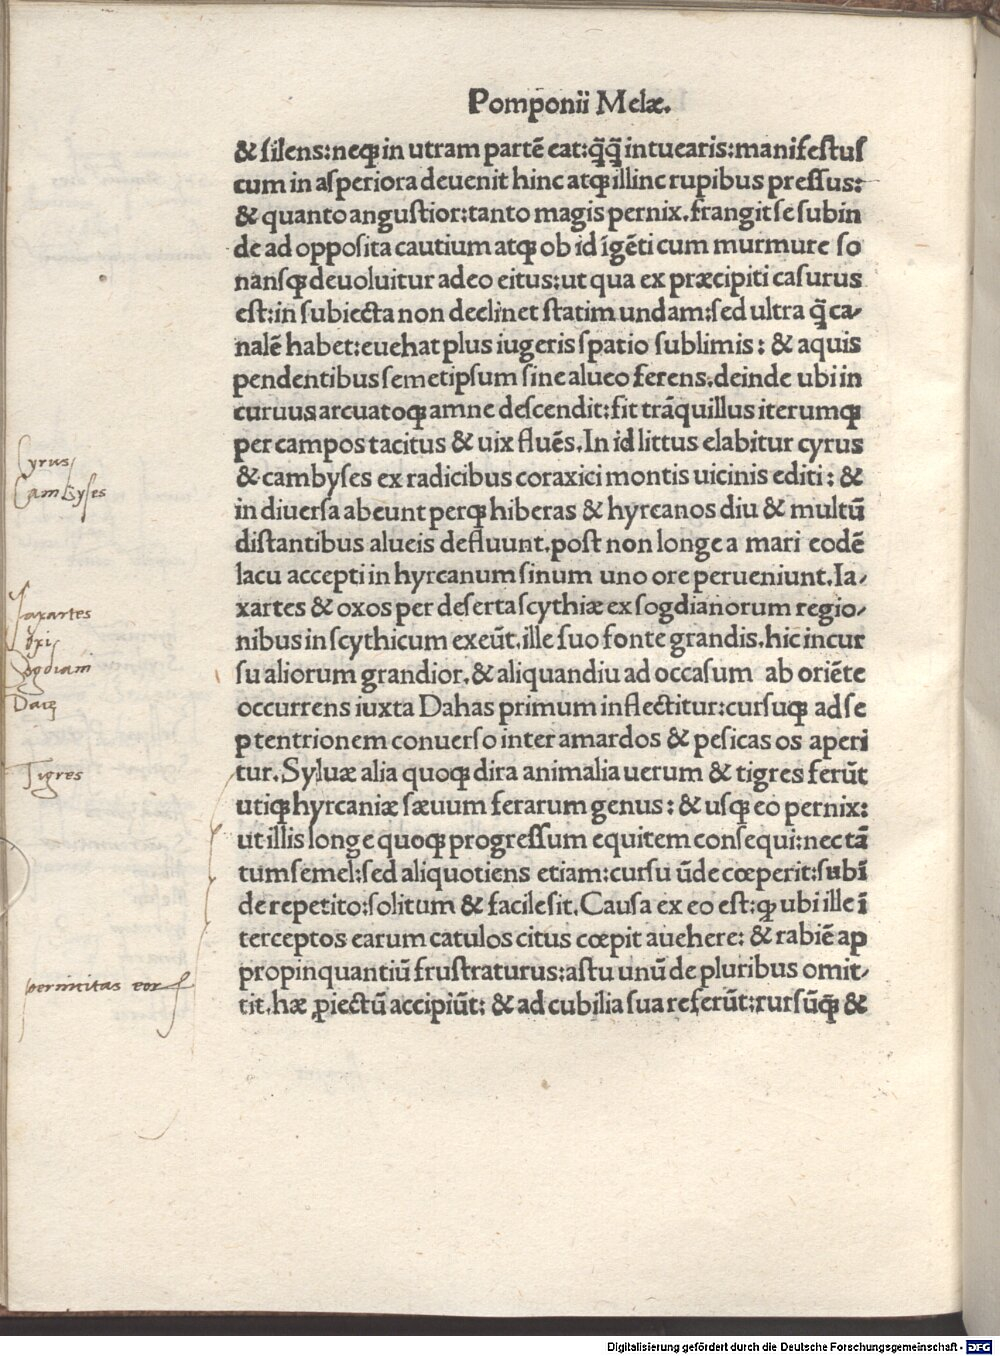 Pomponii Melæ.
& ſilens:neqꝫ in utram partē eat:q̄q̄ intuearis:manifeſtuſ
cum in aſperiora deuenit hinc atqꝫ illinc rupibus preſſus:
& quanto anguſtior:tanto magis pernix.frangit ſe ſubin
de ad oppoſita cautium atqꝫ ob id īgēti cum murmure ſo
nanſqꝫ deuoluitur adeo citus:ut qua ex præcipiti caſurus
eſt:in ſubiecta non declinet ſtatim undam:ſed ultra q̄ ca-
nalē habet:euehat plus iugeris ſpatio ſublimis: & aquis
pendentibus ſemetipſum ſine alueo ferens.deinde ubi in
curuus arcuatoqꝫ amne deſcendit:fit trāquillus iterumqꝫ
per campos tacitus & uix fluēs.In id littus elabitur cyrus
& cambyſes ex radicibus coraxici montis uicinis editi: &
in diuerſa abeunt perqꝫ hiberas & hyrcanos diu & multū
diſtantibus alueis defluunt.poſt non longe a mari eodē
lacu accepti in hyrcanum ſinum uno ore perueniunt.Ia-
xartes & oxos per deſerta ſcythiæ ex ſogdianorum regio-
nibus in ſcythicum exeūt.ille ſuo fonte grandis.hic incur
ſu aliorum grandior.& aliquandiu ad occaſum ab oriēte
occurrens iuxta Dahas primum inflectitur:curſuqꝫ ad ſe
ptentrionem conuerſo inter amardos & peſicas os aperi
tur.Syluæ alia quoqꝫ dira animalia uerum & tigres ferūt
utiqꝫ hyrcaniæ ſæuum ferarum genus: & uſqꝫ eo pernix:
ut illis longe quoqꝫ progreſſum equitem conſequi:nec tā
tum ſemel:ſed aliquotiens etiam:curſu ūde cœperit:ſubī
de repetito:ſolitum & facile ſit.Cauſa ex eo eſt:qꝫ ubi ille ī
terceptos earum catulos citus cœpit auehere: & rabiē ap
propinquantiū fruſtraturus:aſtu unū de pluribus omit-
tit.hæ ꝓiectū accipiūt: & ad cubilia ſua referūt:rurſūqꝫ &
Cyrus
Cambyſes
Iaxartes
Oxis
Sogdiani
Tigres
pernicitas eor
Digitalisierung gefördert durch die Deutsche Forschungsgemeinschaft - DFG